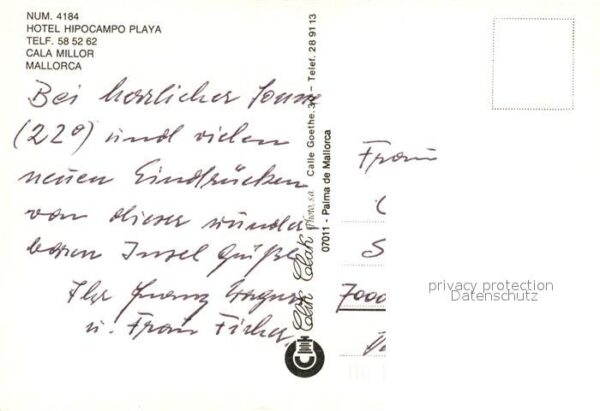 NUM. 4184
HOTEL HIPOCAMPO PLAYA
TELF. 58 52 62
CALA MILLOR
MALLORCA
Bei herrlicher Sonne
(22°) und vielen
neuen Eindrücken
von dieser wunder
baren Insel Grüße
Ihr Franz
u. Frau Fischer
Clik Clak Photo, s.a. Calle Goethe, – Telef. 28 91 13
07011 - Palma de Mallorca
Frau
C
S
7000
privacy protection
Datenschutz